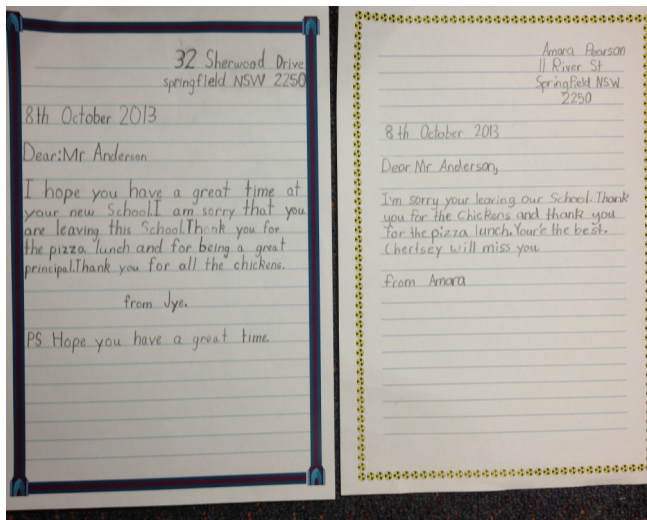 32 Sherwood Drive
springfield NSW 2250
8th October 2013
Dear:Mr Anderson
I hope you have a great time at
your new School.I am sorry that you
are leaving this School.Thank you for
the pizza lunch and for being a great
principal.Thank you for all the chickens.
from Jye.
PS Hope you have a great time.
Amara Pearson
11 River St
Springfield NSW
2250
8th October 2013
Dear Mr Anderson,
I'm sorry your leaving our School. Thank
you for the Chickens and thank you
for the pizza lunch. Your'e the best.
Chertsey will miss you
from Amara